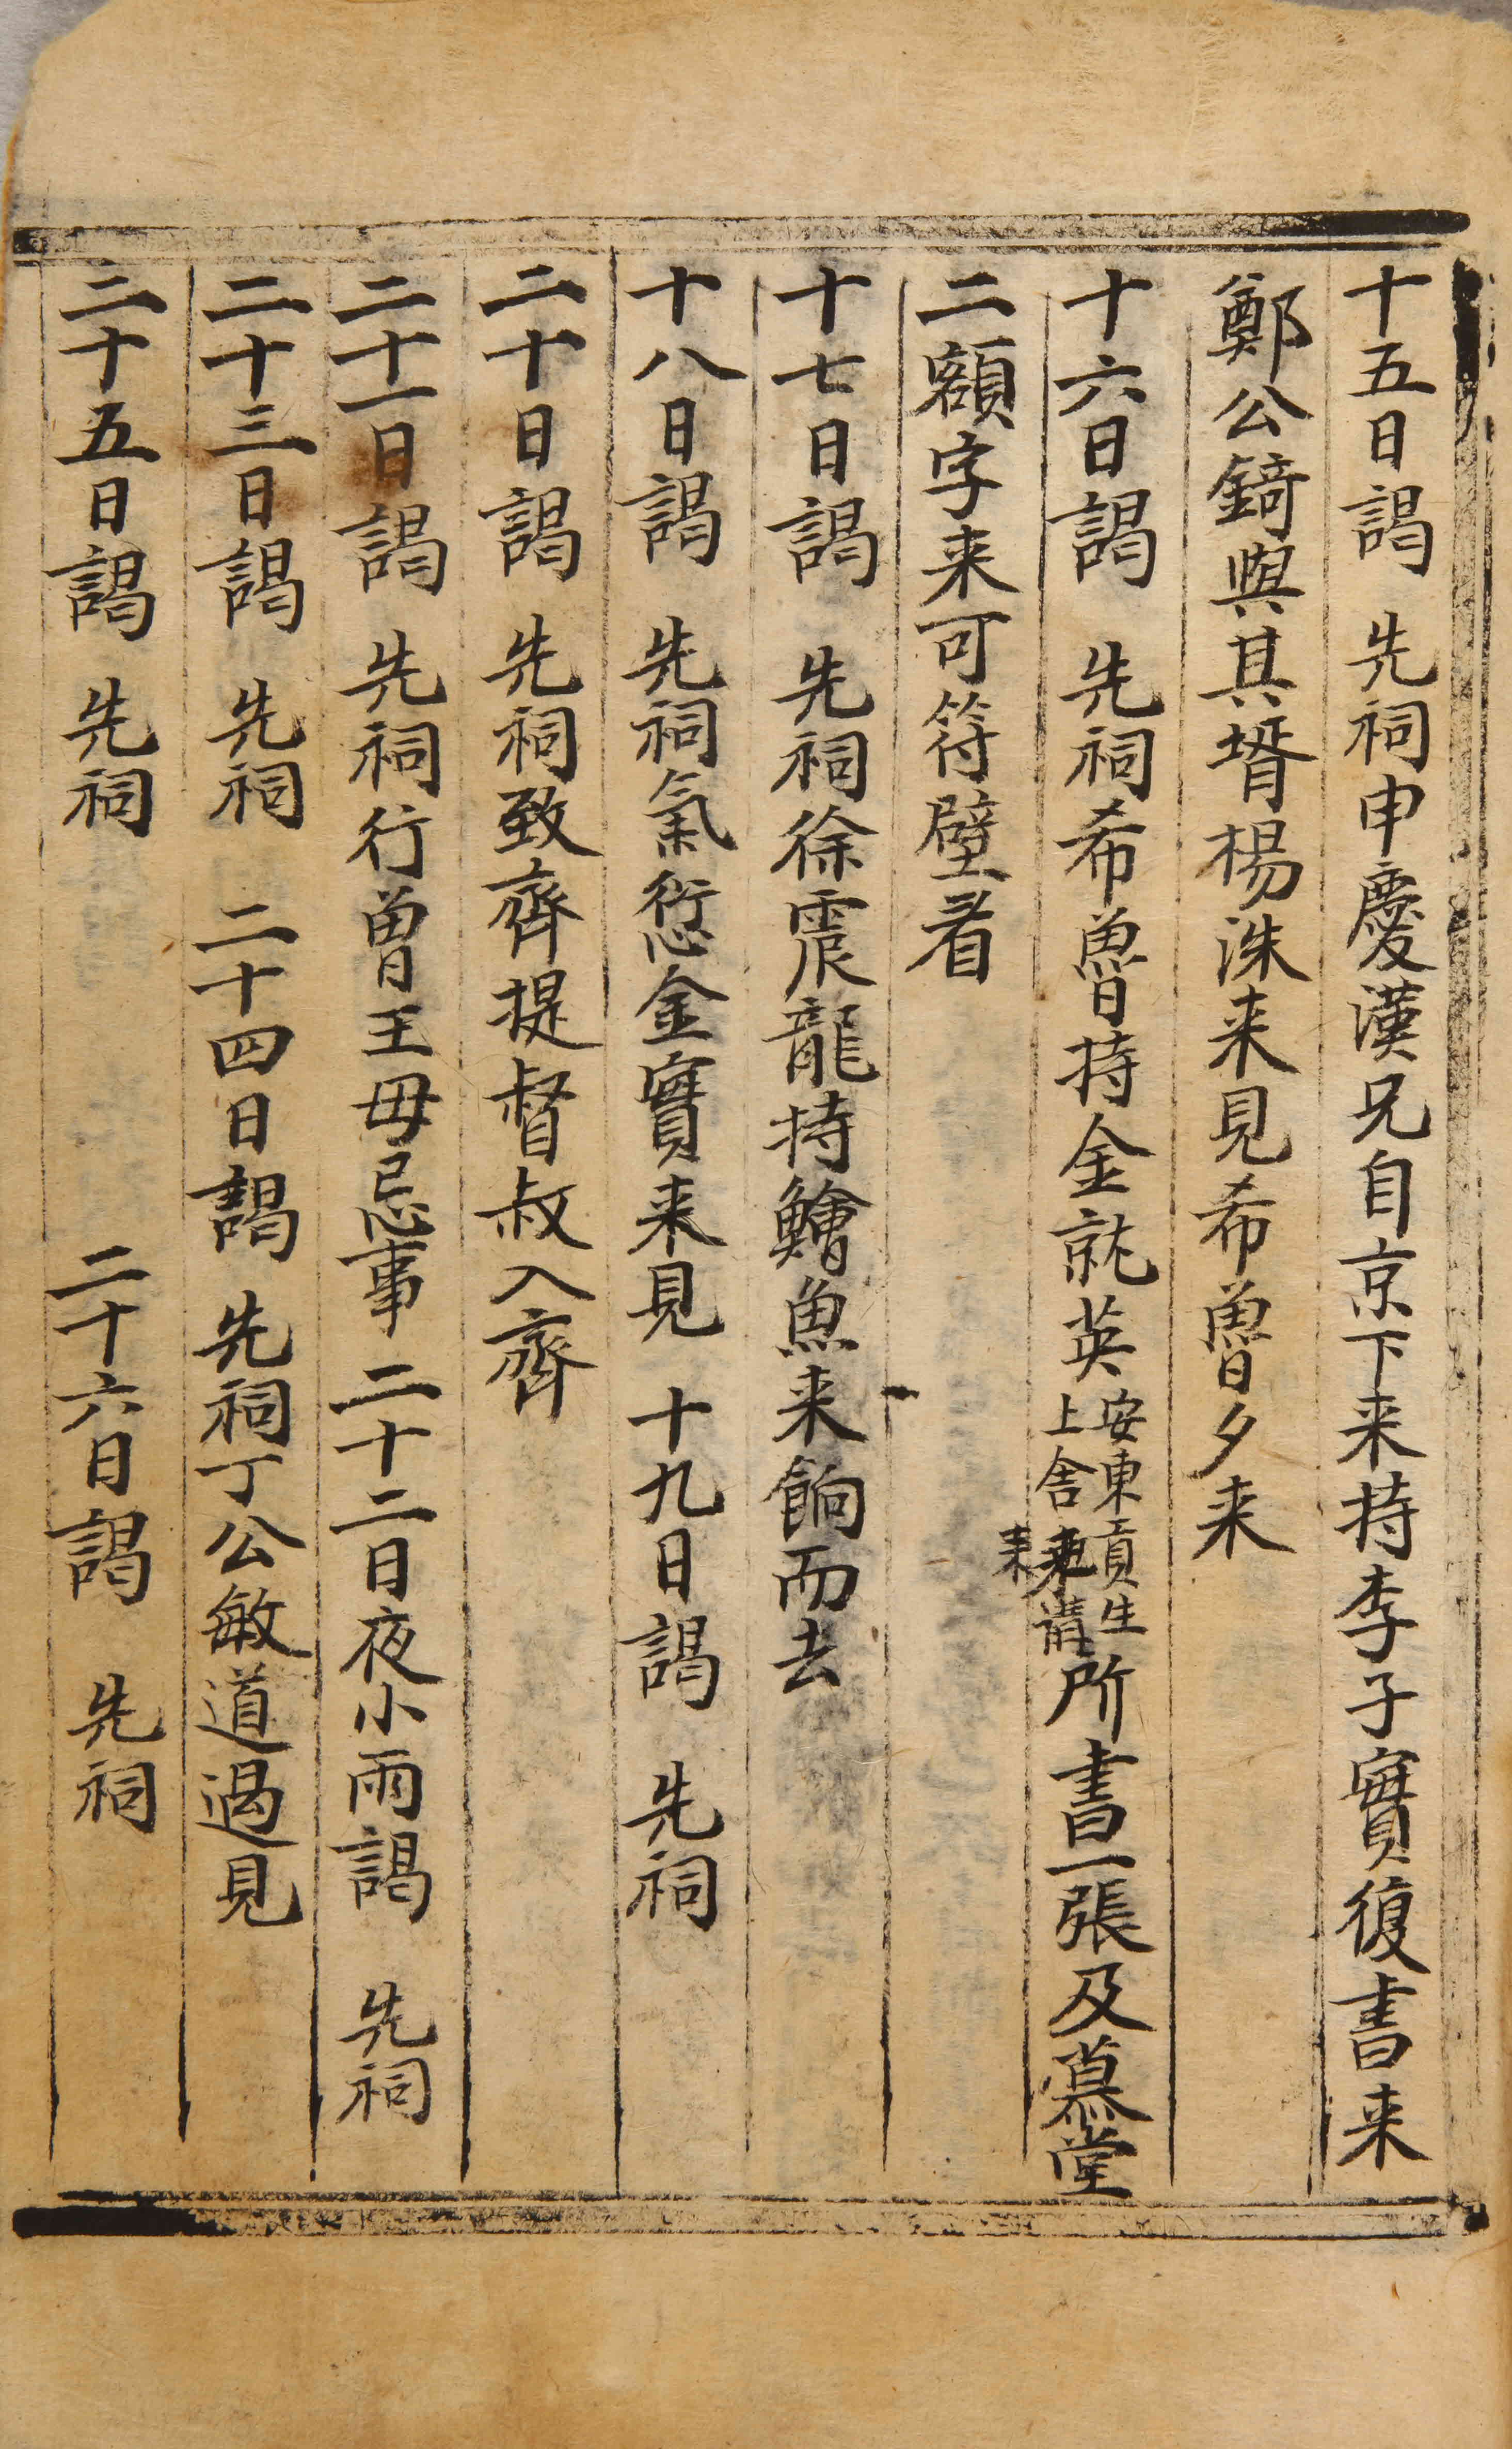 十五日謁　先祠申慶漢兄自京下来持李子實復書来
鄭公錡與其壻楊洙来見希魯夕来
十六日謁　先祠希魯持金就英
安東貢生
上舍
請
来
所書一張及慕堂
二額字来可符壁看
十七日謁　先祠徐震龍持鱠魚来餉而去
十八日謁　先祠氣愆金實来見　十九日謁　先祠
二十日謁　先祠致齊提督叔入齊
二十一日謁　先祠行曽王母忌事　二十二日夜小雨謁　先祠
二十三日謁　先祠　二十四日謁　先祠丁公敏道過見
二十五日謁　先祠　二十六日謁　先祠